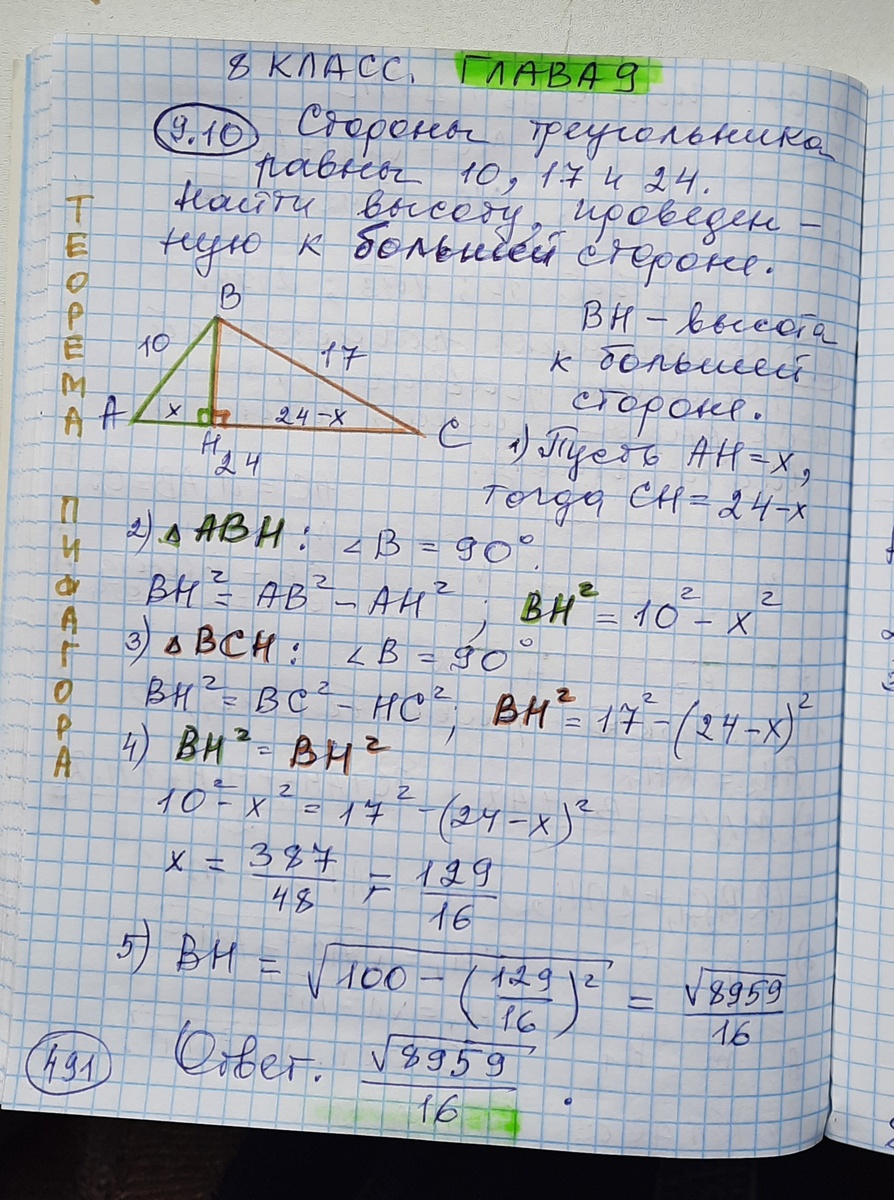 8 КЛАСС. ГЛАВА 9
9.10 Стороны треугольника
равны 10, 17 и 24.
Найти высоту, проведен-
ную к большей стороне.
ТЕОРЕМА ПИФАГОРА
B
10
17
A
x
24-x
C
H
24
BH - высота
к большей
стороне.
1) Пусть AH = x,
тогда CH = 24-x
2) △ABH: ∠B = 90°.
BH² = AB² - AH²; BH² = 10² - x²
3) △BCH: ∠B = 90°
BH² = BC² - HC²; BH² = 17² - (24-x)²
4) BH² = BH²
10² - x² = 17² - (24-x)²
x = 387/48 = 129/16
5) BH = √(100 - (129/16)²) = √8959/16
491 Ответ: √8959/16.